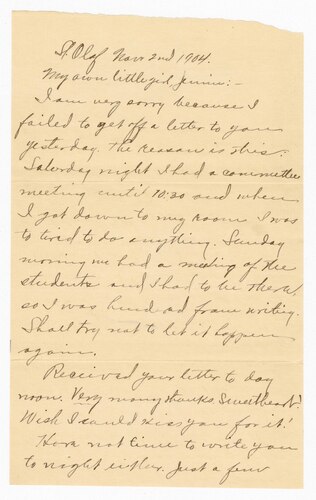 St. Olaf Nov. 2nd 1904.
My own little girl, Jennie:-
I am very sorry because I
failed to get off a letter to you
yesterday. The reason is this:
Saturday night I had a committee
meeting until 10:30 and when
I got down to my room I was
to tired to do anything. Sunday
morning we had a meeting of the
students and I had to be there,
so I was from writing.
Shall try not to let it happen
again.
Received your letter to day
noon. Very many thanks, Sweetheart!
Wish I could kiss you for it!
Have not time to write you
to night either. Just a few